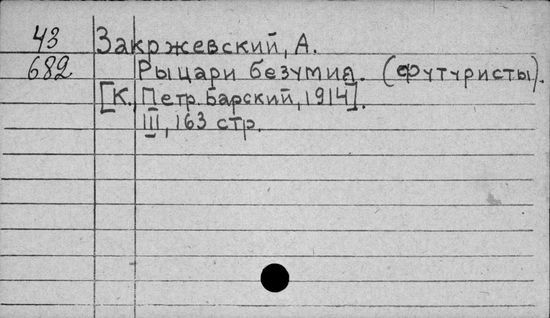 43 Закржевский, А.
682 Рыцари безумия. (футуристы).
[К., Петр. Барский, 1914].
III, 163 стр.